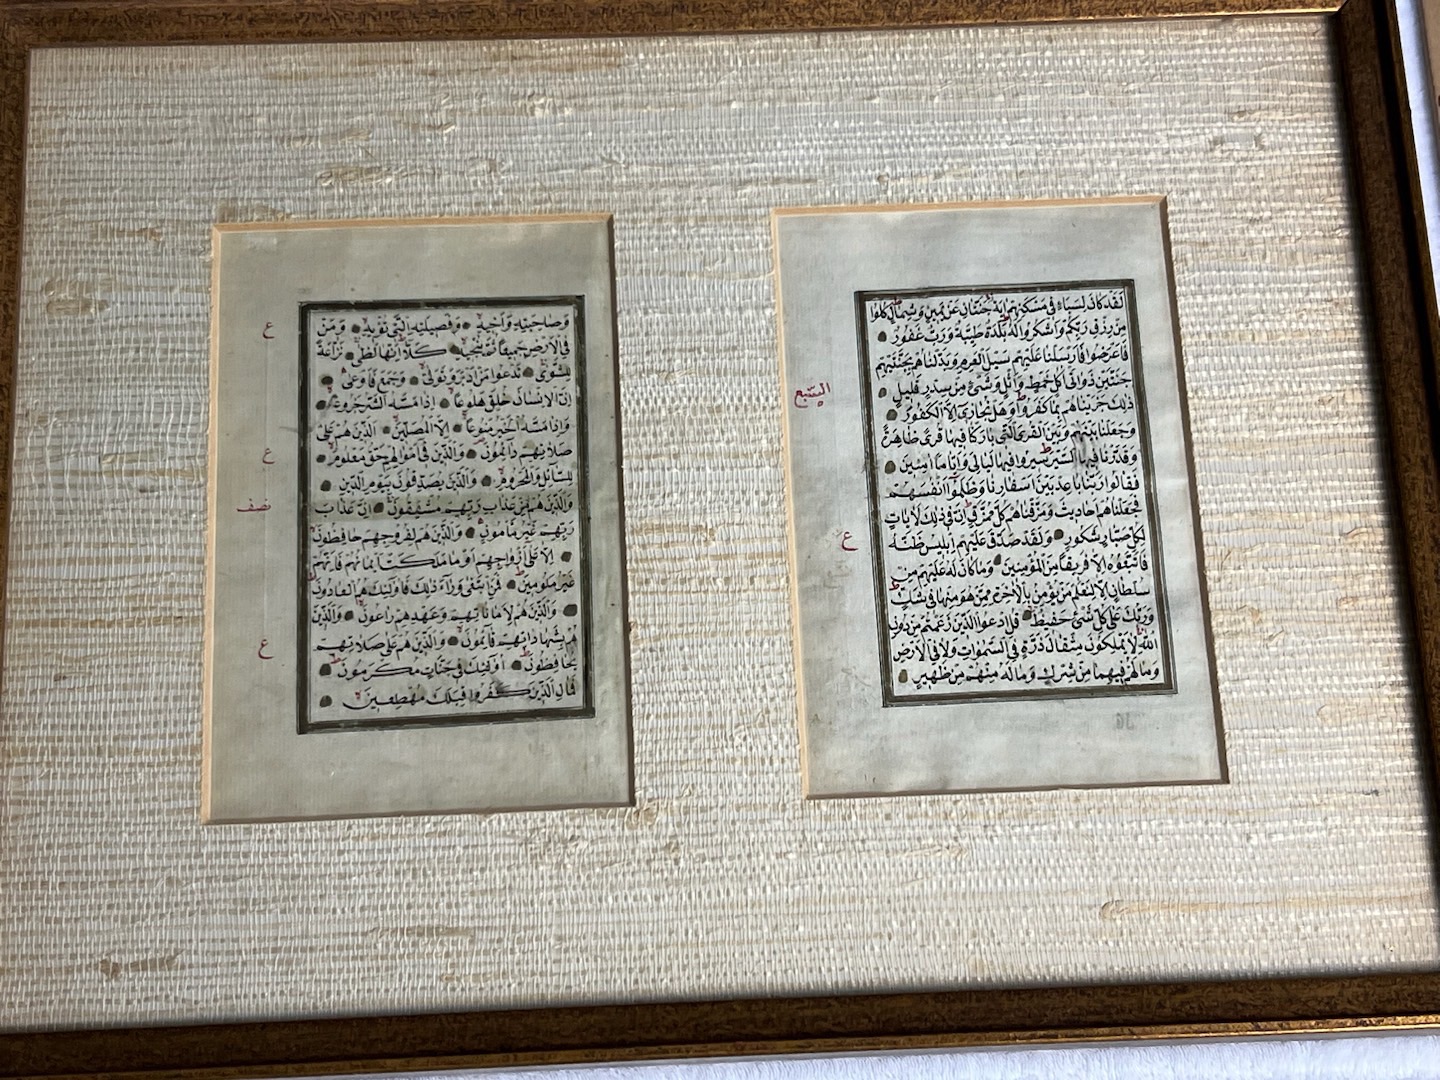 لَقَدْ كَانَ لِسَبَاءٍ فِي مَسْكَنِهِمْ اٰيَةٌ جَنَّتَانِ عَنْ يَمِينٍ وَشِمَالٍ كُلُوا
مِنْ رِزْقِ رَبِّكُمْ وَاشْكُرُوا لَهُ بَلْدَةٌ طَيِّبَةٌ وَرَبٌّ غَفُورٌ
فَاَعْرَضُوا فَاَرْسَلْنَا عَلَيْهِمْ سَيْلَ الْعَرِمِ وَبَدَّلْنَاهُمْ بِجَنَّتَيْهِمْ
جَنَّتَيْنِ ذَوَاتَىْ اُكُلٍ خَمْطٍ وَاَثْلٍ وَشَىْءٍ مِنْ سِدْرٍ قَلِيلٍ
ذٰلِكَ جَزَيْنَاهُمْ بِمَا كَفَرُوا وَهَلْ نُجَازِى اِلَّا الْكَفُورَ
وَجَعَلْنَا بَيْنَهُمْ وَبَيْنَ الْقُرَى الَّتِى بَارَكْنَا فِيهَا قُرًى ظَاهِرَةً
وَقَدَّرْنَا فِيهَا السَّيْرَ سِيرُوا فِيهَا لَيَالِىَ وَاَيَّامًا اٰمِنِينَ
فَقَالُوا رَبَّنَا بَاعِدْ بَيْنَ اَسْفَارِنَا وَظَلَمُوا اَنْفُسَهُمْ
فَجَعَلْنَاهُمْ اَحَادِيثَ وَمَزَّقْنَاهُمْ كُلَّ مُمَزَّقٍ اِنَّ فِى ذٰلِكَ لَاٰيَاتٍ
لِكُلِّ صَبَّارٍ شَكُورٍ وَلَقَدْ صَدَّقَ عَلَيْهِمْ اِبْلِيسُ ظَنَّهُ
فَاتَّبَعُوهُ اِلَّا فَرِيقًا مِنَ الْمُؤْمِنِينَ وَمَا كَانَ لَهُ عَلَيْهِمْ مِنْ
سُلْطَانٍ اِلَّا لِنَعْلَمَ مَنْ يُؤْمِنُ بِالْاٰخِرَةِ مِمَّنْ هُوَ مِنْهَا فِى شَكٍّ
وَرَبُّكَ عَلٰى كُلِّ شَىْءٍ حَفِيظٌ قُلِ ادْعُوا الَّذِينَ زَعَمْتُمْ مِنْ دُونِ
اللّٰهِ لَا يَمْلِكُونَ مِثْقَالَ ذَرَّةٍ فِى السَّمٰوَاتِ وَلَا فِى الْاَرْضِ
وَمَا لَهُمْ فِيهِمَا مِنْ شِرْكٍ وَمَا لَهُ مِنْهُمْ مِنْ ظَهِيرٍ
ع
وَصَاحِبَتِهِ وَاَخِيهِ وَفَصِيلَتِهِ الَّتِى تُؤْيهِ وَمَنْ
فِى الْاَرْضِ جَمِيعًا ثُمَّ يُنْجِيهِ كَلَّا اِنَّهَا لَظٰى نَزَّاعَةً
لِلشَّوٰى تَدْعُوا مَنْ اَدْبَرَ وَتَوَلّٰى وَجَمَعَ فَاَوْعٰى
اِنَّ الْاِنْسَانَ خُلِقَ هَلُوعًا اِذَا مَسَّهُ الشَّرُّ جَزُوعًا
وَاِذَا مَسَّهُ الْخَيْرُ مَنُوعًا اِلَّا الْمُصَلِّينَ الَّذِينَ هُمْ عَلٰى
صَلَاتِهِمْ دَائِمُونَ وَالَّذِينَ فِى اَمْوَالِهِمْ حَقٌّ مَعْلُومٌ
لِلسَّائِلِ وَالْمَحْرُومِ وَالَّذِينَ يُصَدِّقُونَ بِيَوْمِ الدِّينِ
وَالَّذِينَ هُمْ مِنْ عَذَابِ رَبِّهِمْ مُشْفِقُونَ اِنَّ عَذَابَ
رَبِّهِمْ غَيْرُ مَأْمُونٍ وَالَّذِينَ هُمْ لِفُرُوجِهِمْ حَافِظُونَ
اِلَّا عَلٰى اَزْوَاجِهِمْ اَوْ مَا مَلَكَتْ اَيْمَانُهُمْ فَاِنَّهُمْ
غَيْرُ مَلُومِينَ فَمَنِ ابْتَغٰى وَرَاءَ ذٰلِكَ فَاُولٰئِكَ هُمُ الْعَادُونَ
وَالَّذِينَ هُمْ لِاَمَانَاتِهِمْ وَعَهْدِهِمْ رَاعُونَ وَالَّذِينَ
هُمْ بِشَهَادَاتِهِمْ قَائِمُونَ وَالَّذِينَ هُمْ عَلٰى صَلَاتِهِمْ
يُحَافِظُونَ اُولٰئِكَ فِى جَنَّاتٍ مُكْرَمُونَ
فَمَالِ الَّذِينَ كَفَرُوا قِبَلَكَ مُهْطِعِينَ
ع
ع
نصف
ع